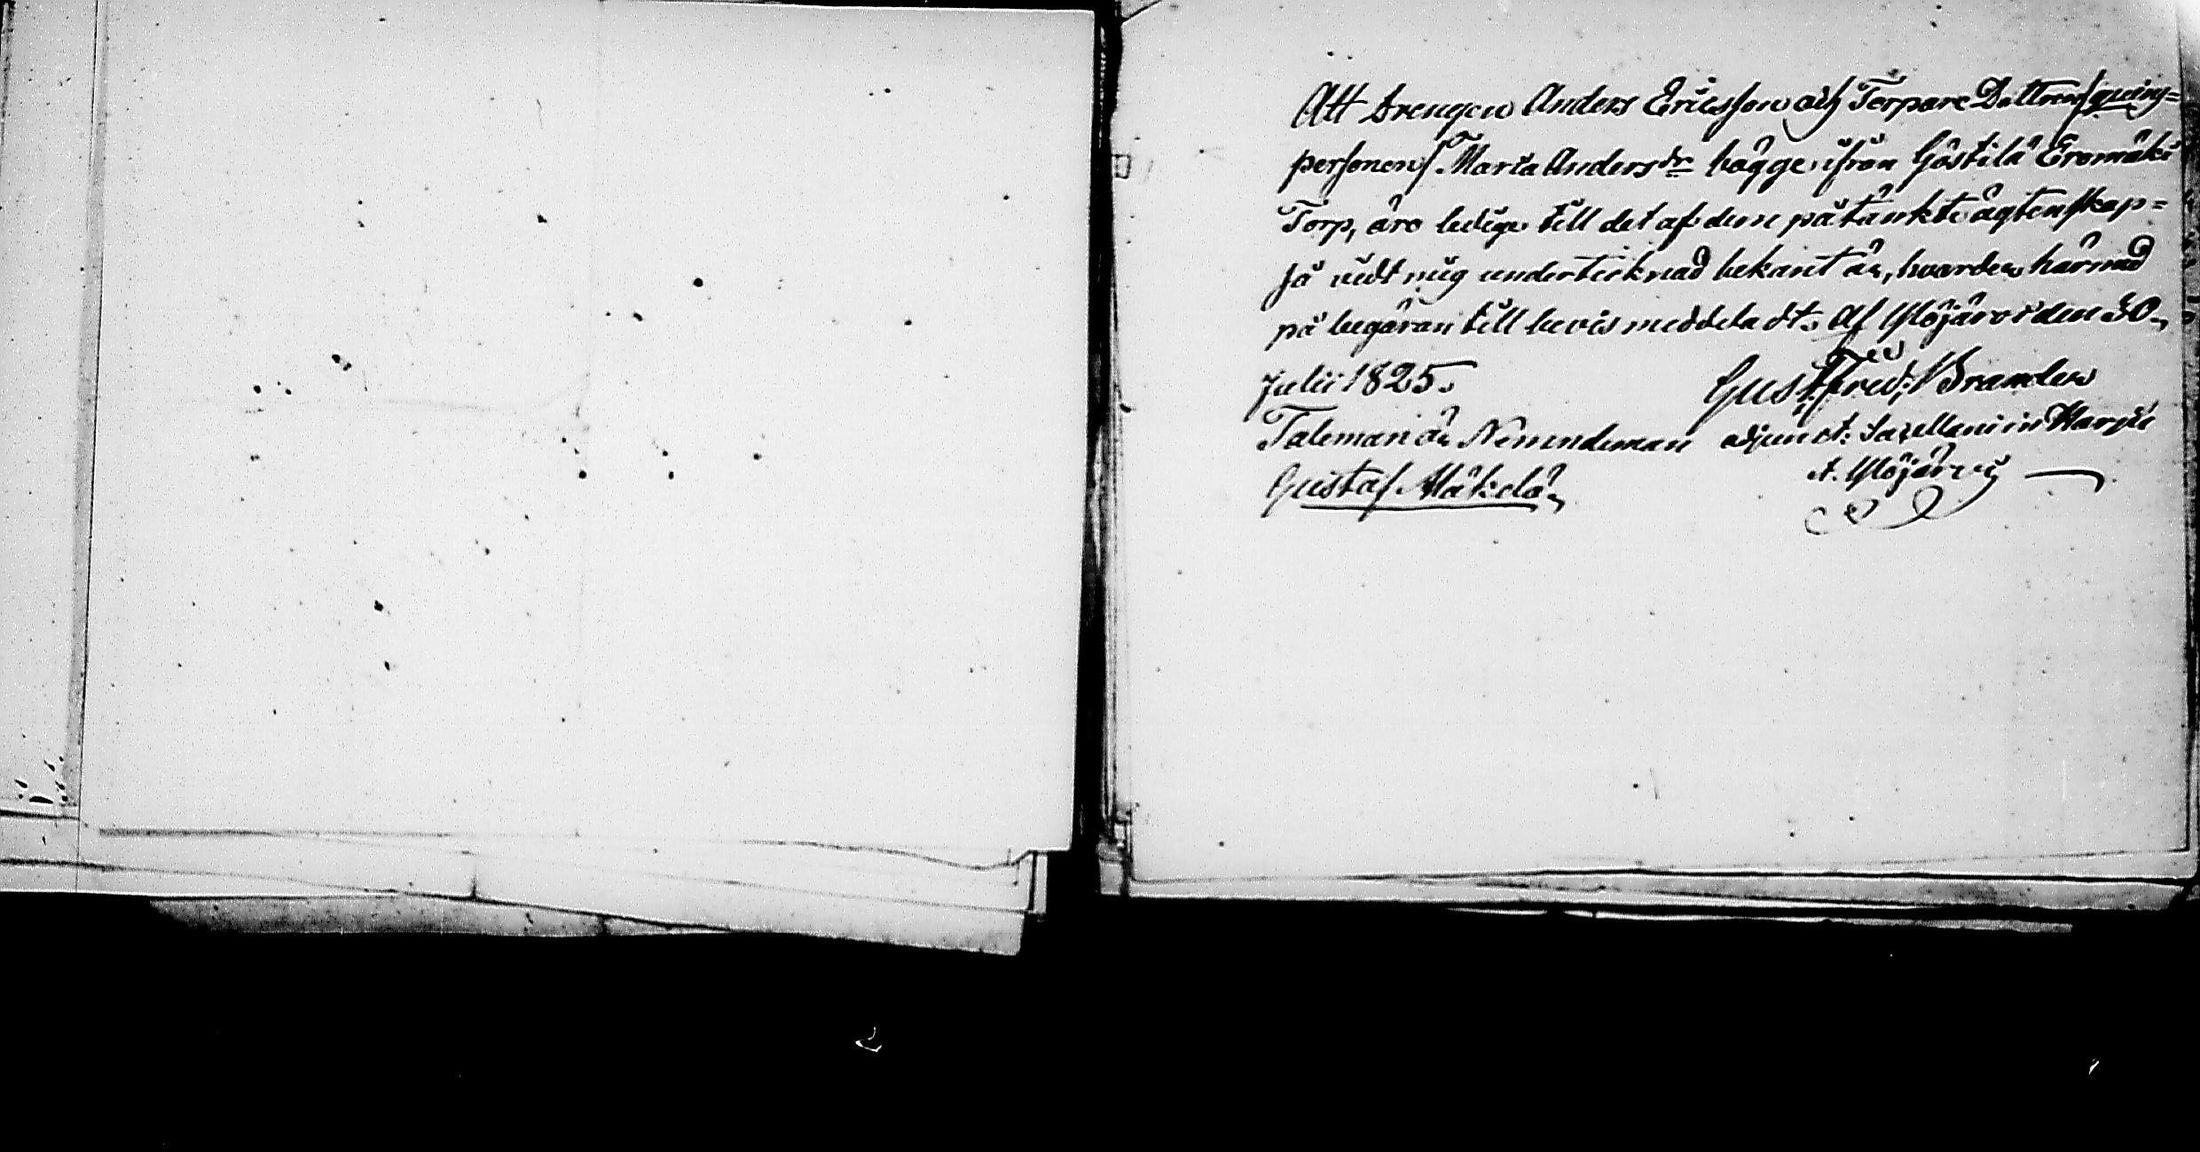 Att Drengen Anders Ericsson och Torpare Dottren/qvins=
personen/ Maria Anders dr bägge ifrån Göstilä Eromäki
Torp, äro ledige till det af dem påtänkte ägtenskap=
så vidt mig undertecknad bekant är, hvarder härmed
på begäran till bevis meddeladt. Af Ylöjärvi den 30
Julii 1825. Gust. Fred: Brander
Taleman är Nämndeman adjunct: Sacellani in Harju
Gustaf Mäkelä et. Ylöjärvij